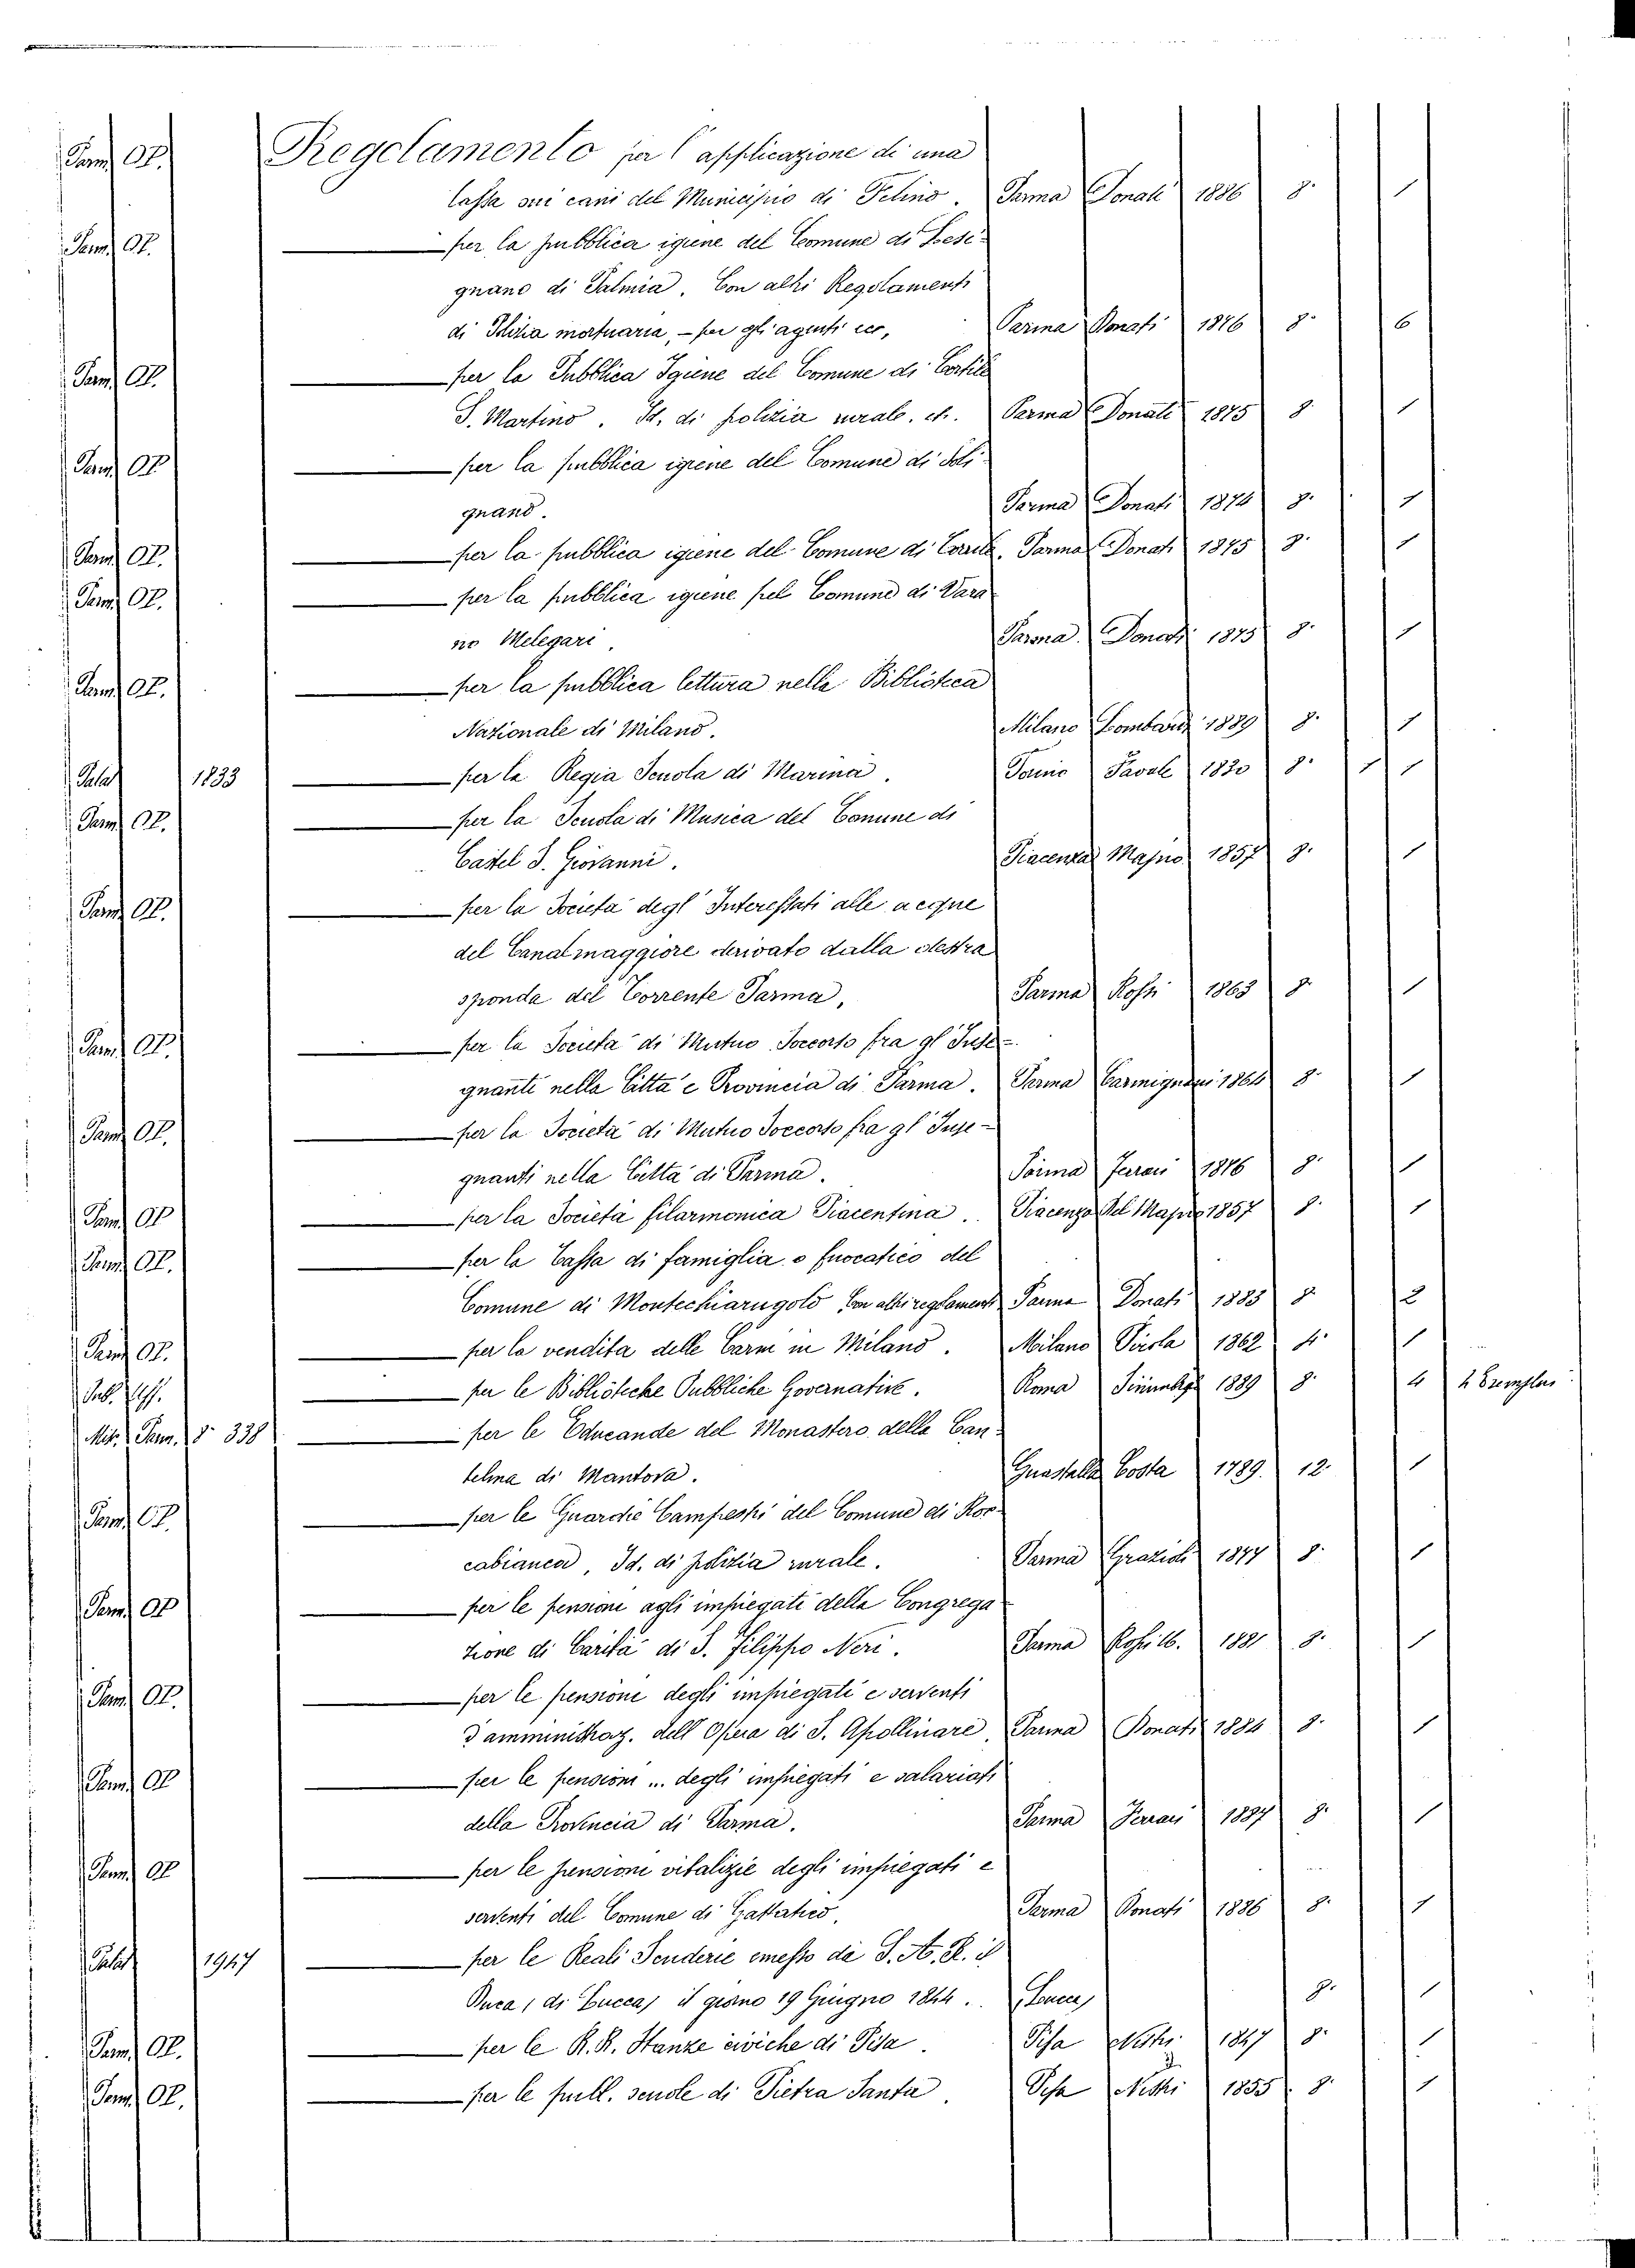 Parm. Op. Regolamento per l'applicazione di una
tassa sui cani del Municipio di Felino. Parma Donati 1886 8° 1
Parm. Op. per la pubblica igiene del Comune di Lesi-
gnano di Palmia. Con altri Regolamenti
di Polizia mortuaria, - per gli agenti ecc, Parma Donati 1876 8° 6
Parm. Op. per la Pubblica Igiene del Comune di Cortile
S. Martino. Id. di polizia rurale. Parma Donati 1875 8° 1
Parm. Op. per la pubblica igiene del Comune di Soli-
gnano. Parma Donati 1874 8° 1
Parm. Op. per la pubblica igiene del Comune di Parma Donati 1875 8° 1
Parm. Op. per la pubblica igiene pel Comune di Vara-
no Melegari. Parma Donati 1875 8° 1
Parm. Op. per la pubblica lettura nella Biblioteca
Nazionale di Milano. Milano Lombardi 1889 8° 1
Palat 1833 per la Regia Scuola di Marina. Torino Favale 1830 8° 1 1
Parm. Op. per la Scuola di Musica del Comune di
Castel S. Giovanni. Piacenza Majno 1857 8° 1
Parm. Op. per la Società degl' Interessati alle acque
del Canalmaggiore derivato dalla destra
sponda del Torrente Parma, Parma Rossi 1863 8° 1
Parm. Op. per la Società di Mutuo Soccorso fra gl' Inse-
gnanti nella Città e Provincia di Parma. Parma Carmignani 1864 8° 1
Parm. Op. per la Società di Mutuo Soccorso fra gl' Inse-
gnanti nella Città di Parma. Parma Ferrari 1876 8° 1
Parm. Op. per la Società filarmonica Piacentina. Piacenza Del Majno 1857 8° 1
Parm. Op. per la Tassa di famiglia o fuocatico del
Comune di Montechiarugolo Con altri reglamenti Parma Donati 1883 8° 2
Parm. Op. per la vendita delle Carni in Milano. Milano Pirola 1862 4° 1
per le Biblioteche Pubbliche Governative. Roma 1889 8° 4 2 Exemplar
Mis. Parm. 8° 338 per le Educande del Monastero della Can-
telma di Mantova. Guastalla Costa 1789. 12. 1
Parm. Op. per le Guardie Campestri del Comune di Roc-
cabianca, Id. di polizia rurale. Parma Grazioli 1877 8° 1
Parm. Op. per le pensioni agli impiegati della Congrega-
zione di Carità di S. Filippo Neri. Parma 1881 8° 1
Parm. Op. per le pensioni degli impiegati e serventi
d'amministraz. dell' Opera di S. Apollinare. Parma Donati 1884 8° 1
Parm. Op. per le pensioni ... degli impiegati e salariati
della Provincia di Parma. Parma Ferrari 1887 8° 1
Parm. Op. per le pensioni vitalizie degli impiegati e
serventi del Comune di Gattatico. Parma Donati 1886 8° 1
Palat 1947 per le Reali Scuderie emesso da S. A. R. il
Duca, di Lucca, il giorno 19 Giugno 1844. Lucca, 8. 1
Parm. Op. per le R. R. Stanze civiche di Pisa. Pisa Nistri 1847 8° 1
Parm. Op. per le pubbl. scuole di Pietra Santa. Pisa Nistri 1855 8° 1